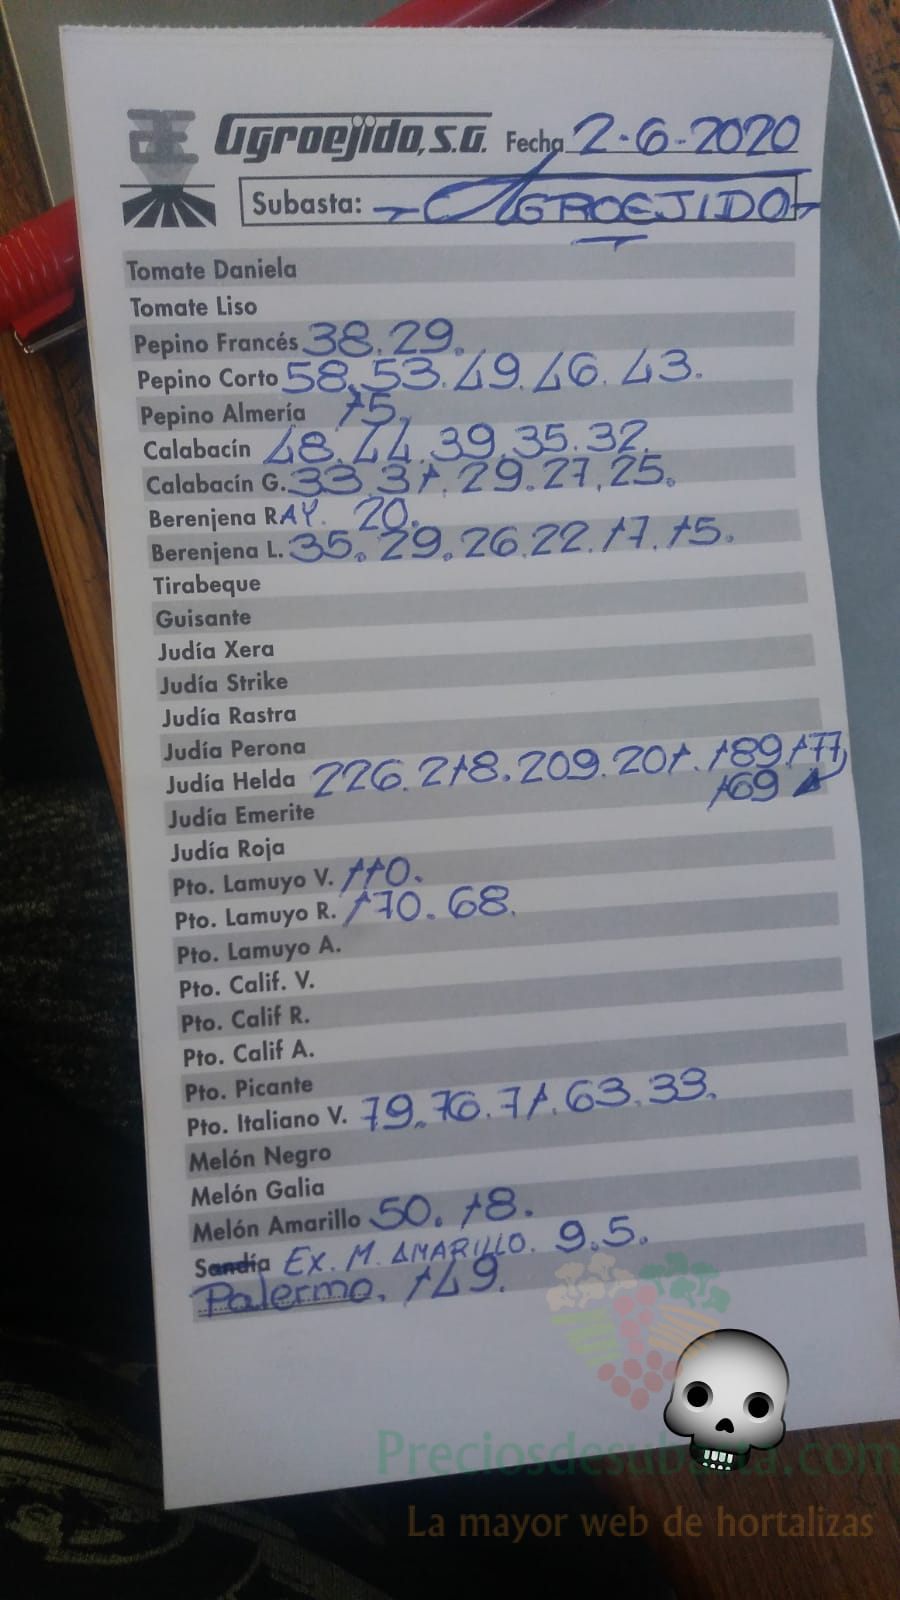 Agroejido, S.A. Fecha 2-6-2020
Subasta: AGROEJIDO
Tomate Daniela
Tomate Liso
Pepino Francés 38.29.
Pepino Corto 58.53.49.46.43.
Pepino Almería 15.
Calabacín 48.44.39.35.32
Calabacín G. 33.31.29.27.25.
Berenjena RAY. 20.
Berenjena L. 35.29.26.22.17.15.
Tirabeque
Guisante
Judía Xera
Judía Strike
Judía Rastra
Judía Perona
Judía Helda 226.218.209.201.189.177
169
Judía Emerite
Judía Roja
Pto. Lamuyo V. 110.
Pto. Lamuyo R. 170.68.
Pto. Lamuyo A.
Pto. Calif. V.
Pto. Calif R.
Pto. Calif A.
Pto. Picante
Pto. Italiano V. 79.76.71.63.33.
Melón Negro
Melón Galia
Melón Amarillo 50.18.
Sandía EX. M. AMARILLO. 9.5.
Palermo. 149.
Preciosdesubasta.com
La mayor web de hortalizas